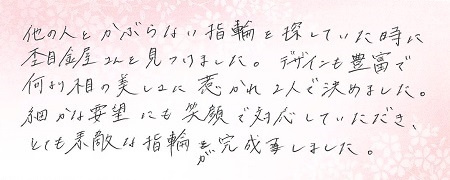 他の人とかぶらない指輪を探していた時に
杢目金屋さんを見つけました。デザインも豊富で
何より相の美しさに惹かれ2人で決めました。
細かな要望にも笑顔で対応していただき、
とても素敵な指輪が完成しました。